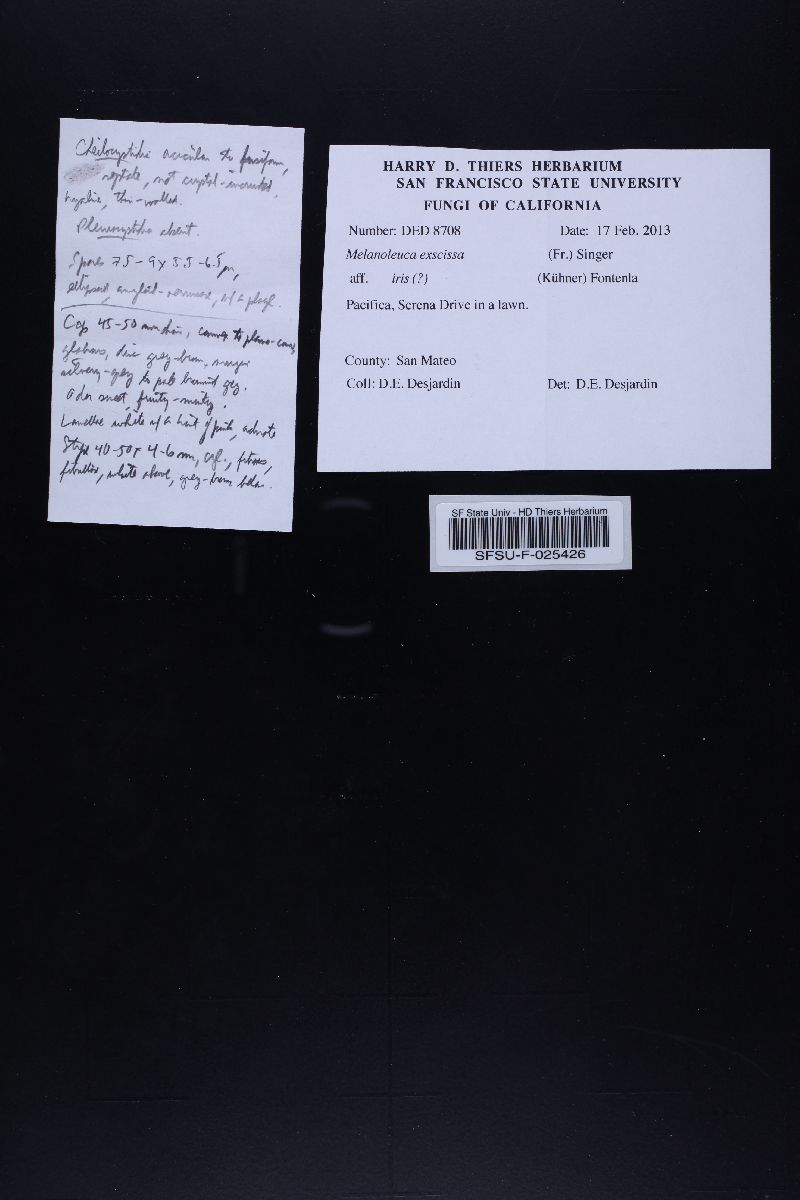 Cheilocystidia acicular to fusiform,
septate, not crystal-incrusted,
hyaline, thin-walled.
Pleurocystidia absent.
Spores 7.5-9 x 5.5-6.5 µm,
ellipsoid, amyloid-verrucose, w/ a plage.
Cap 45-50 mm diam, convex to plano-convex,
glabrous, disc grey-brown, margin
silvery-grey to pale brownish grey.
Odor sweet, fruity-
Lamellae white w/ a hint of pink, adnate
Stipe 40-50 x 4-6 mm, cyl., fibrous,
fibrillose, white above, grey-brown below.
HARRY D. THIERS HERBARIUM
SAN FRANCISCO STATE UNIVERSITY
FUNGI OF CALIFORNIA
Number: DED 8708 Date: 17 Feb. 2013
Melanoleuca exscissa (Fr.) Singer
aff. iris (?) (Kühner) Fontenla
Pacifica, Serena Drive in a lawn.
County: San Mateo
Coll: D.E. Desjardin Det: D.E. Desjardin
SF State Univ - HD Thiers Herbarium
SFSU-F-025426